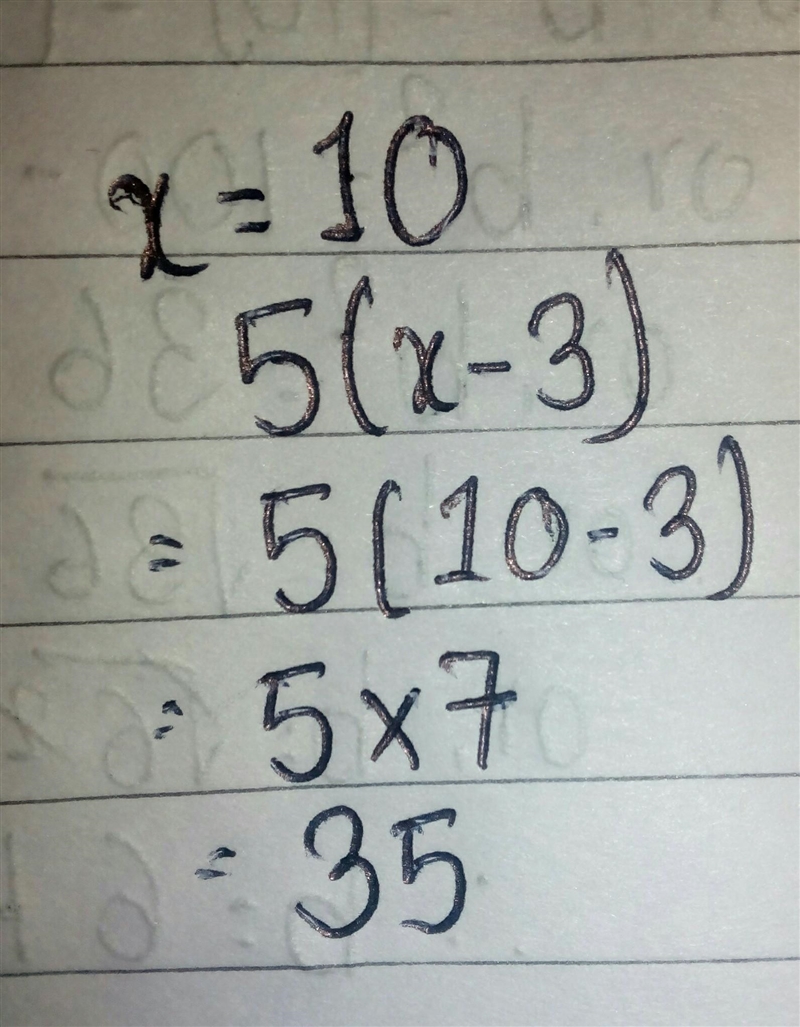 x = 10
5(x - 3)
= 5(10 - 3)
= 5 x 7
= 35